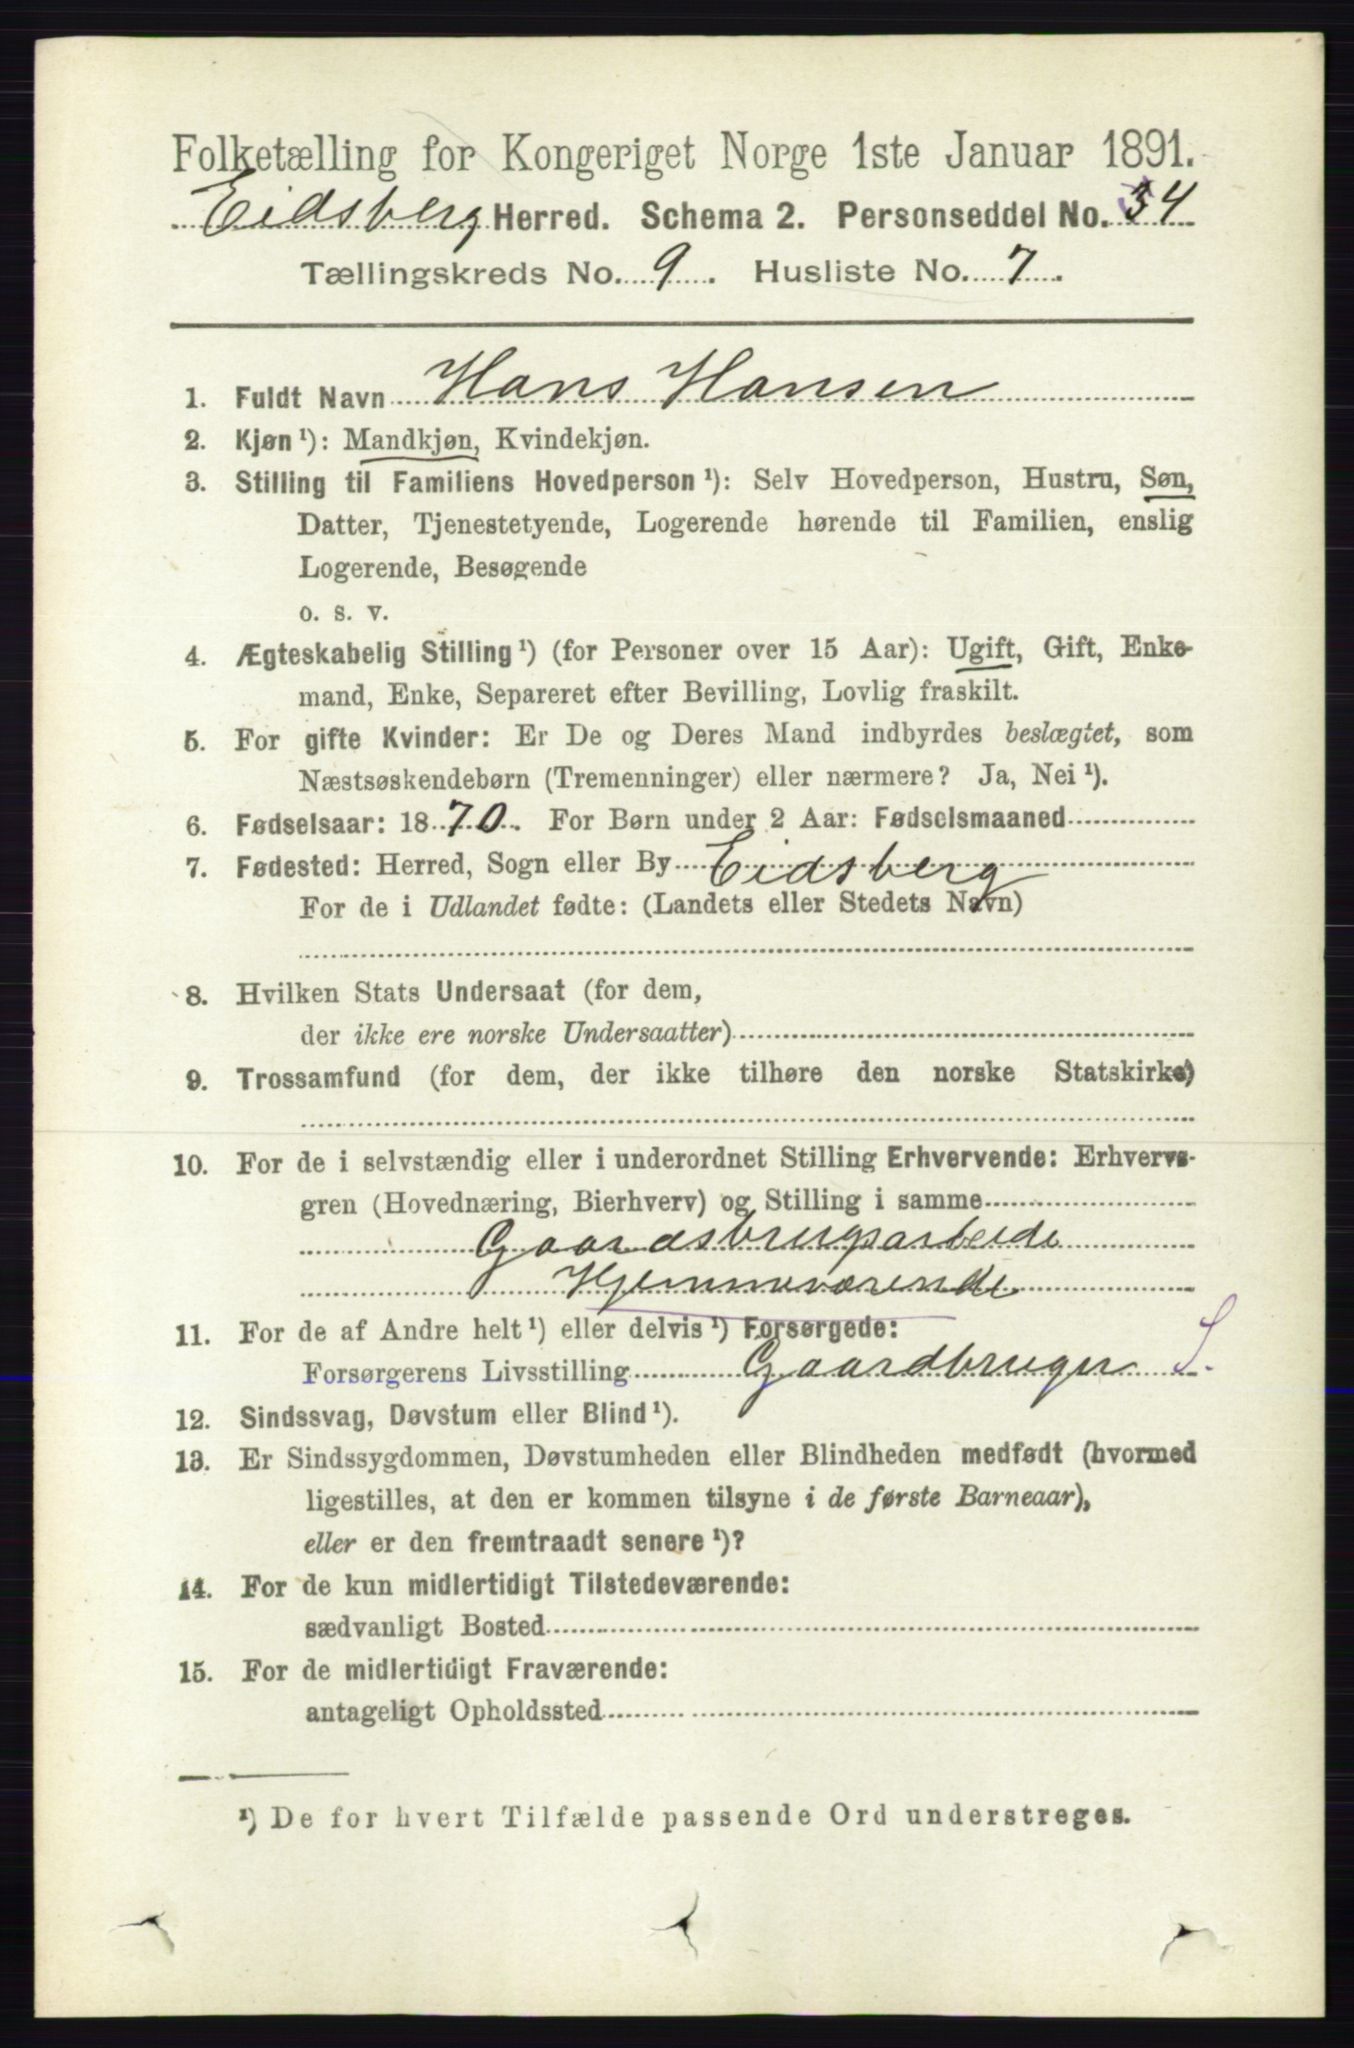 Folketælling for Kongeriget Norge 1ste Januar 1891.
Eidsberg Herred. Schema 2. Personseddel No. 34
Tællingskreds No. 9. Husliste No. 7.
1. Fuldt Navn Hans Hansen
2. Kjøn ¹): Mandkjøn, Kvindekjøn.
3. Stilling til Familiens Hovedperson ¹): Selv Hovedperson, Hustru, Søn,
Datter, Tjenestetyende, Logerende hørende til Familien, enslig
Logerende, Besøgende
o. s. v.
4. Ægteskabelig Stilling ¹) (for Personer over 15 Aar): Ugift, Gift, Enke-
mand, Enke, Separeret efter Bevilling, Lovlig fraskilt.
5. For gifte Kvinder: Er De og Deres Mand indbyrdes beslægtet, som
Næstsøskendebørn (Tremenninger) eller nærmere? Ja, Nei ¹).
6. Fødselsaar: 1870. For Børn under 2 Aar: Fødselsmaaned
7. Fødested: Herred, Sogn eller By Eidsberg
For de i Udlandet fødte: (Landets eller Stedets Navn)
8. Hvilken Stats Undersaat (for dem,
der ikke ere norske Undersaatter)
9. Trossamfund (for dem, der ikke tilhøre den norske Statskirke)
10. For de i selvstændig eller i underordnet Stilling Erhvervende: Erhvervs-
gren (Hovednæring, Bierhverv) og Stilling i samme
Gaardsbrugsarbeide
Hjemmeværende
11. For de af Andre helt ¹) eller delvis ¹) Forsørgede:
Forsørgerens Livsstilling Gaardbruger S.
12. Sindssvag, Døvstum eller Blind ¹).
13. Er Sindssygdommen, Døvstumheden eller Blindheden medfødt (hvormed
ligestilles, at den er kommen tilsyne i de første Barneaar),
eller er den fremtraadt senere ¹)?
14. For de kun midlertidigt Tilstedeværende:
sædvanligt Bosted
15. For de midlertidigt Fraværende:
antageligt Opholdssted
¹) De for hvert Tilfælde passende Ord understreges.